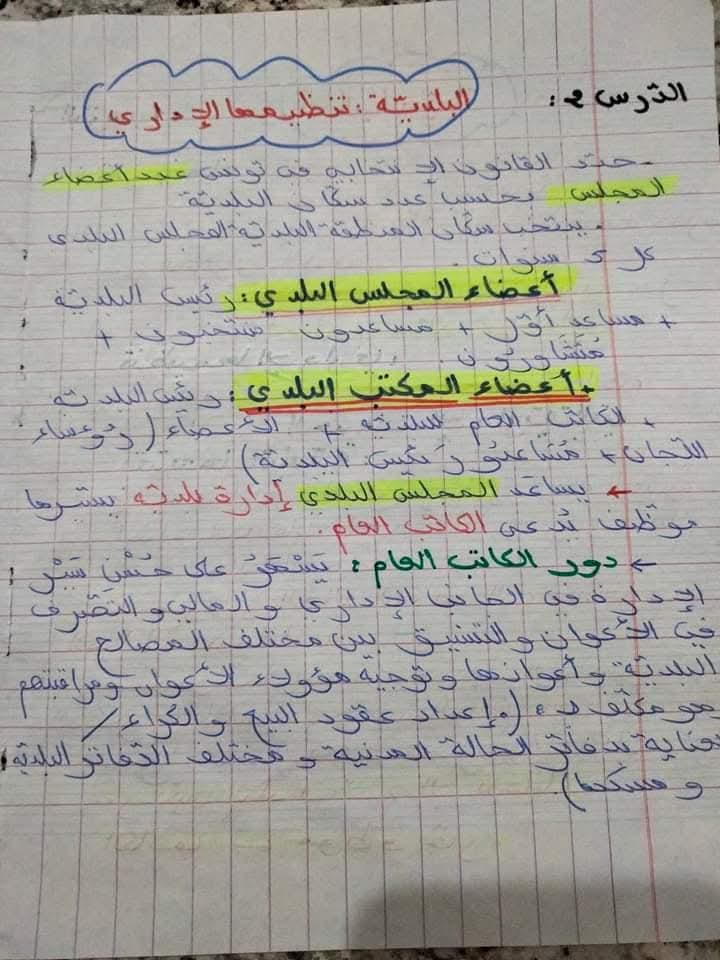 الدّرس 2:
البلديّة: تنظيمها الإداري
- حدّد القانون الإنتخابي في تونس عدد أعضاء
المجلس بحسب عدد سكّان البلديّة
- ينتخب سكّان المنطقة البلديّة المجلس البلدي
كل 5 سنوات.
أعضاء المجلس البلدي: رئيس البلديّة
+ مساعد أوّل + مساعدون منتخبون +
مُتشاورون.
+ أعضاء المكتب البلدي: رئيس البلديّة
+ الكاتب العام للبلديّة + الأعضاء (رؤساء
اللّجان + مُساعدو رئيس البلديّة)
← يساعد المجلس البلدي إدارة بلديّة يسيّرها
موظّف يُدعى الكاتب العام.
← دور الكاتب العام: يَسْهَرُ على حُسْنِ سَيْرِ
الإدارة في الجانب الإداري و المالي و التصرّف
في الأعوان و التنسيق بين مختلف المصالح
البلديّة و أعوانها و توجيه هؤولاء الأعوان ومراقبتهم
وهو مكلّف بـ: (إعداد عقود البيع والكراء /
عناية بدفاتر الحالة المدنية و مختلف الدّفاتر البلديّة
و مسكها)